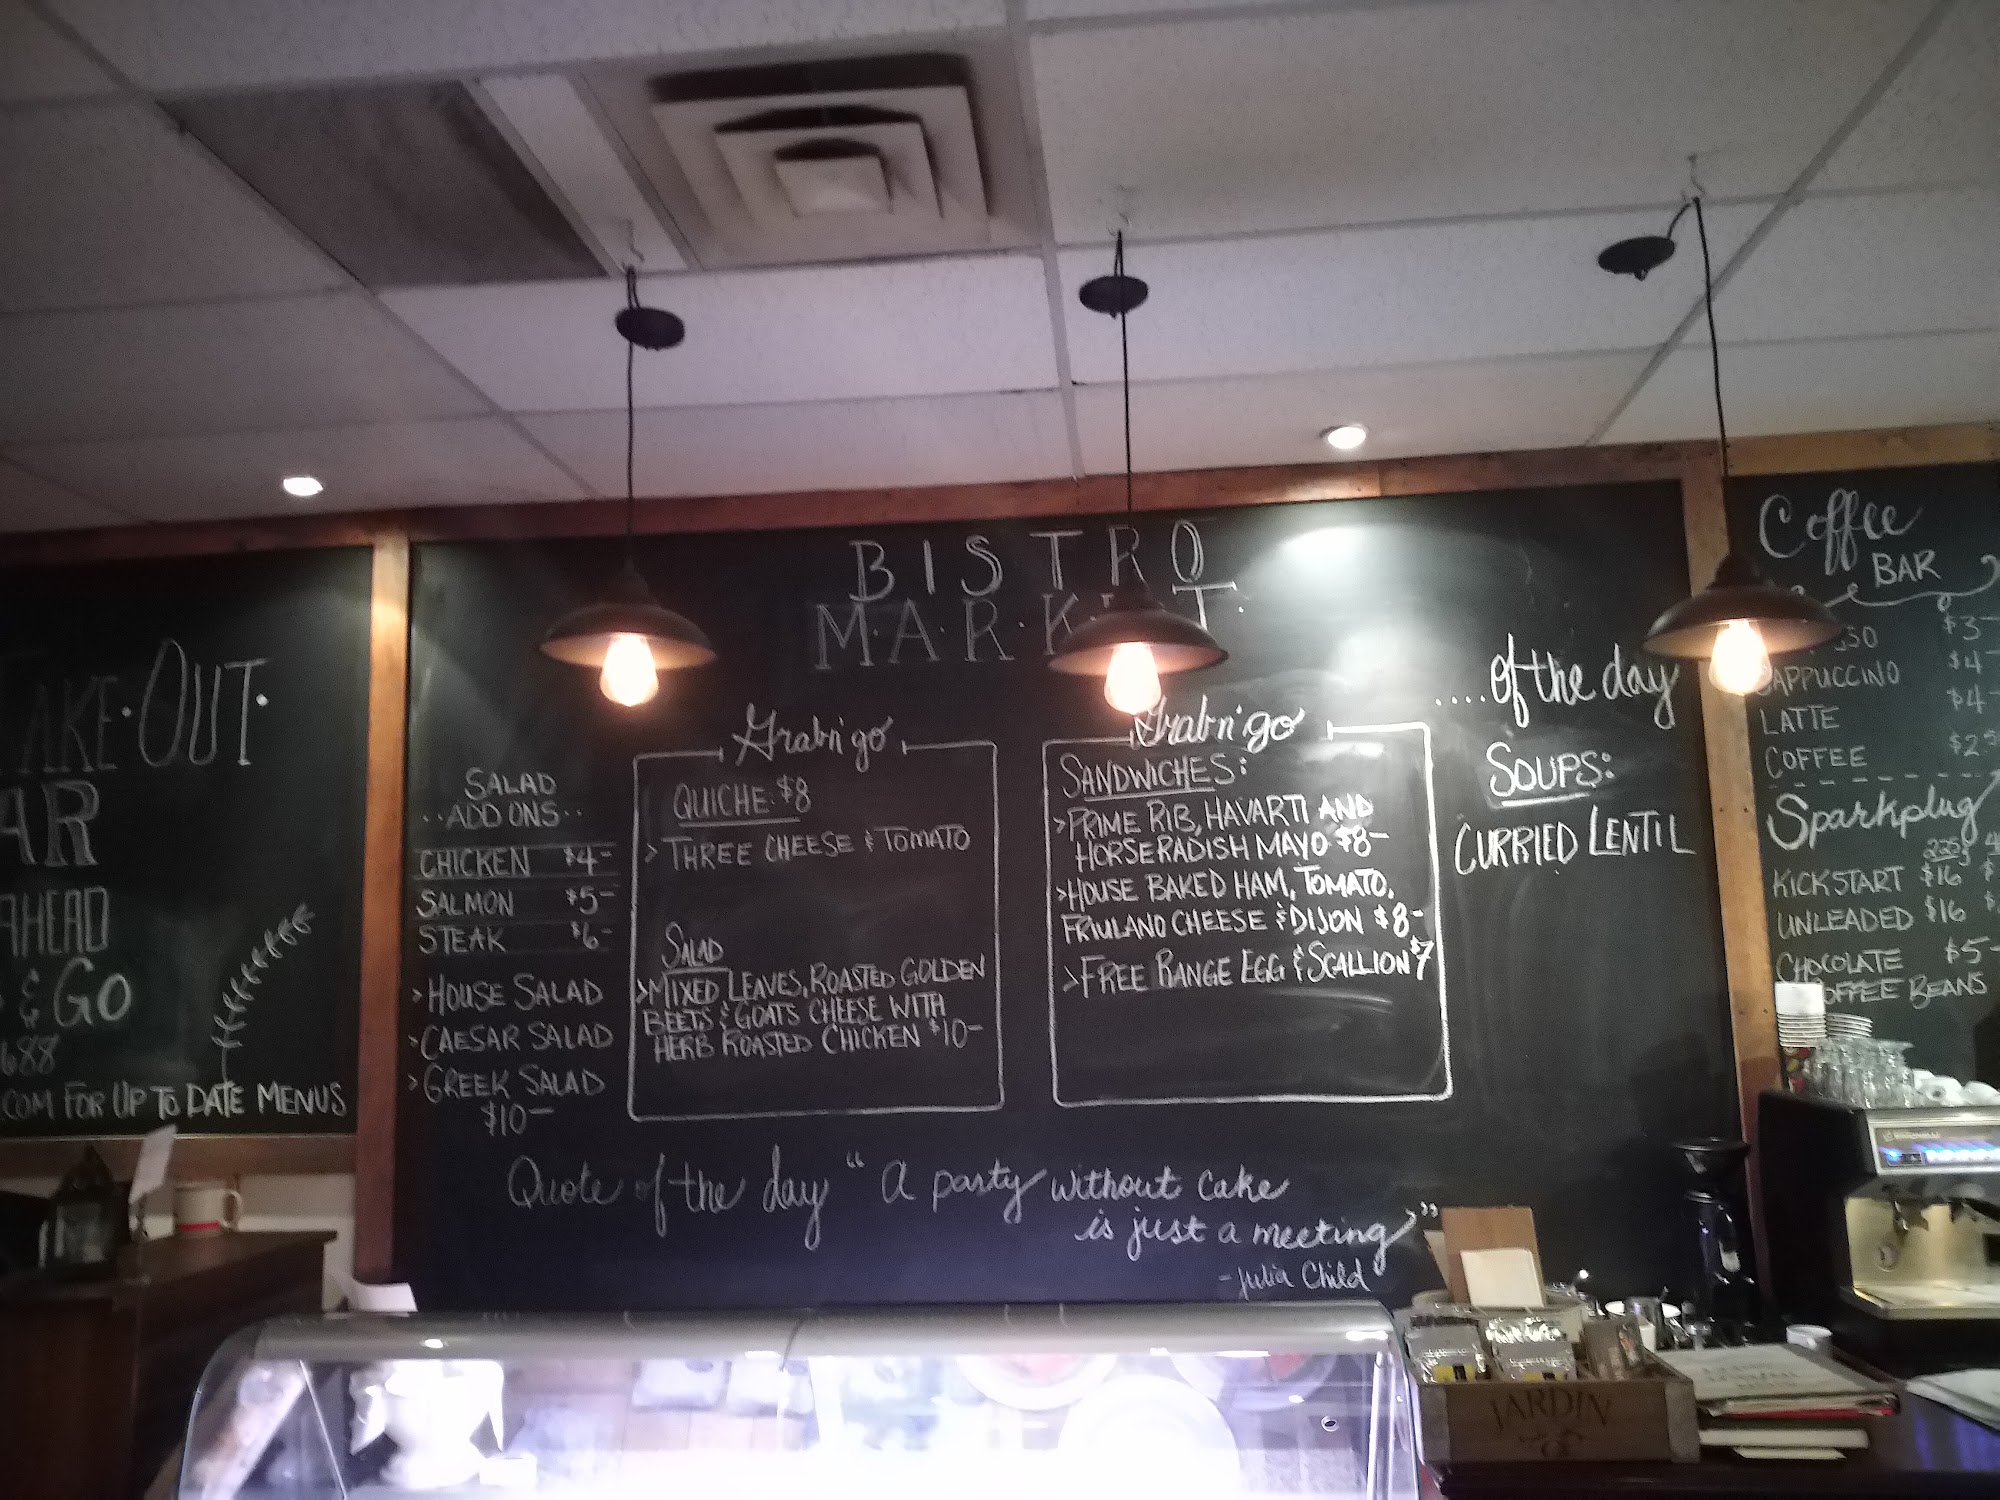 TAKE·OUT·
AHEAD
& GO
688
COM FOR UP TO DATE MENUS
BISTRO
MARKET
SALAD
··ADD ONS··
CHICKEN $4-
SALMON $5-
STEAK $6-
>HOUSE SALAD
>CAESAR SALAD
>GREEK SALAD
$10-
Grab n' go
QUICHE $8
> THREE CHEESE & TOMATO
SALAD
>MIXED LEAVES, ROASTED GOLDEN
BEETS & GOATS CHEESE WITH
HERB ROASTED CHICKEN $10-
Grab n' go
SANDWICHES:
>PRIME RIB, HAVARTI AND
HORSERADISH MAYO $8-
>HOUSE BAKED HAM, TOMATO,
FRIULANO CHEESE & DIJON $8-
>FREE RANGE EGG & SCALLION $7
.....of the day
SOUPS:
CURRIED LENTIL
Quote of the day " A party without cake
is just a meeting"
- Julia Child
Coffee
BAR
$3-
CAPPUCCINO $4-
LATTE $4-
COFFEE $2
Sparkplug
225g
KICKSTART $16
UNLEADED $16
CHOCOLATE $5-
COFFEE BEANS
JARDIN